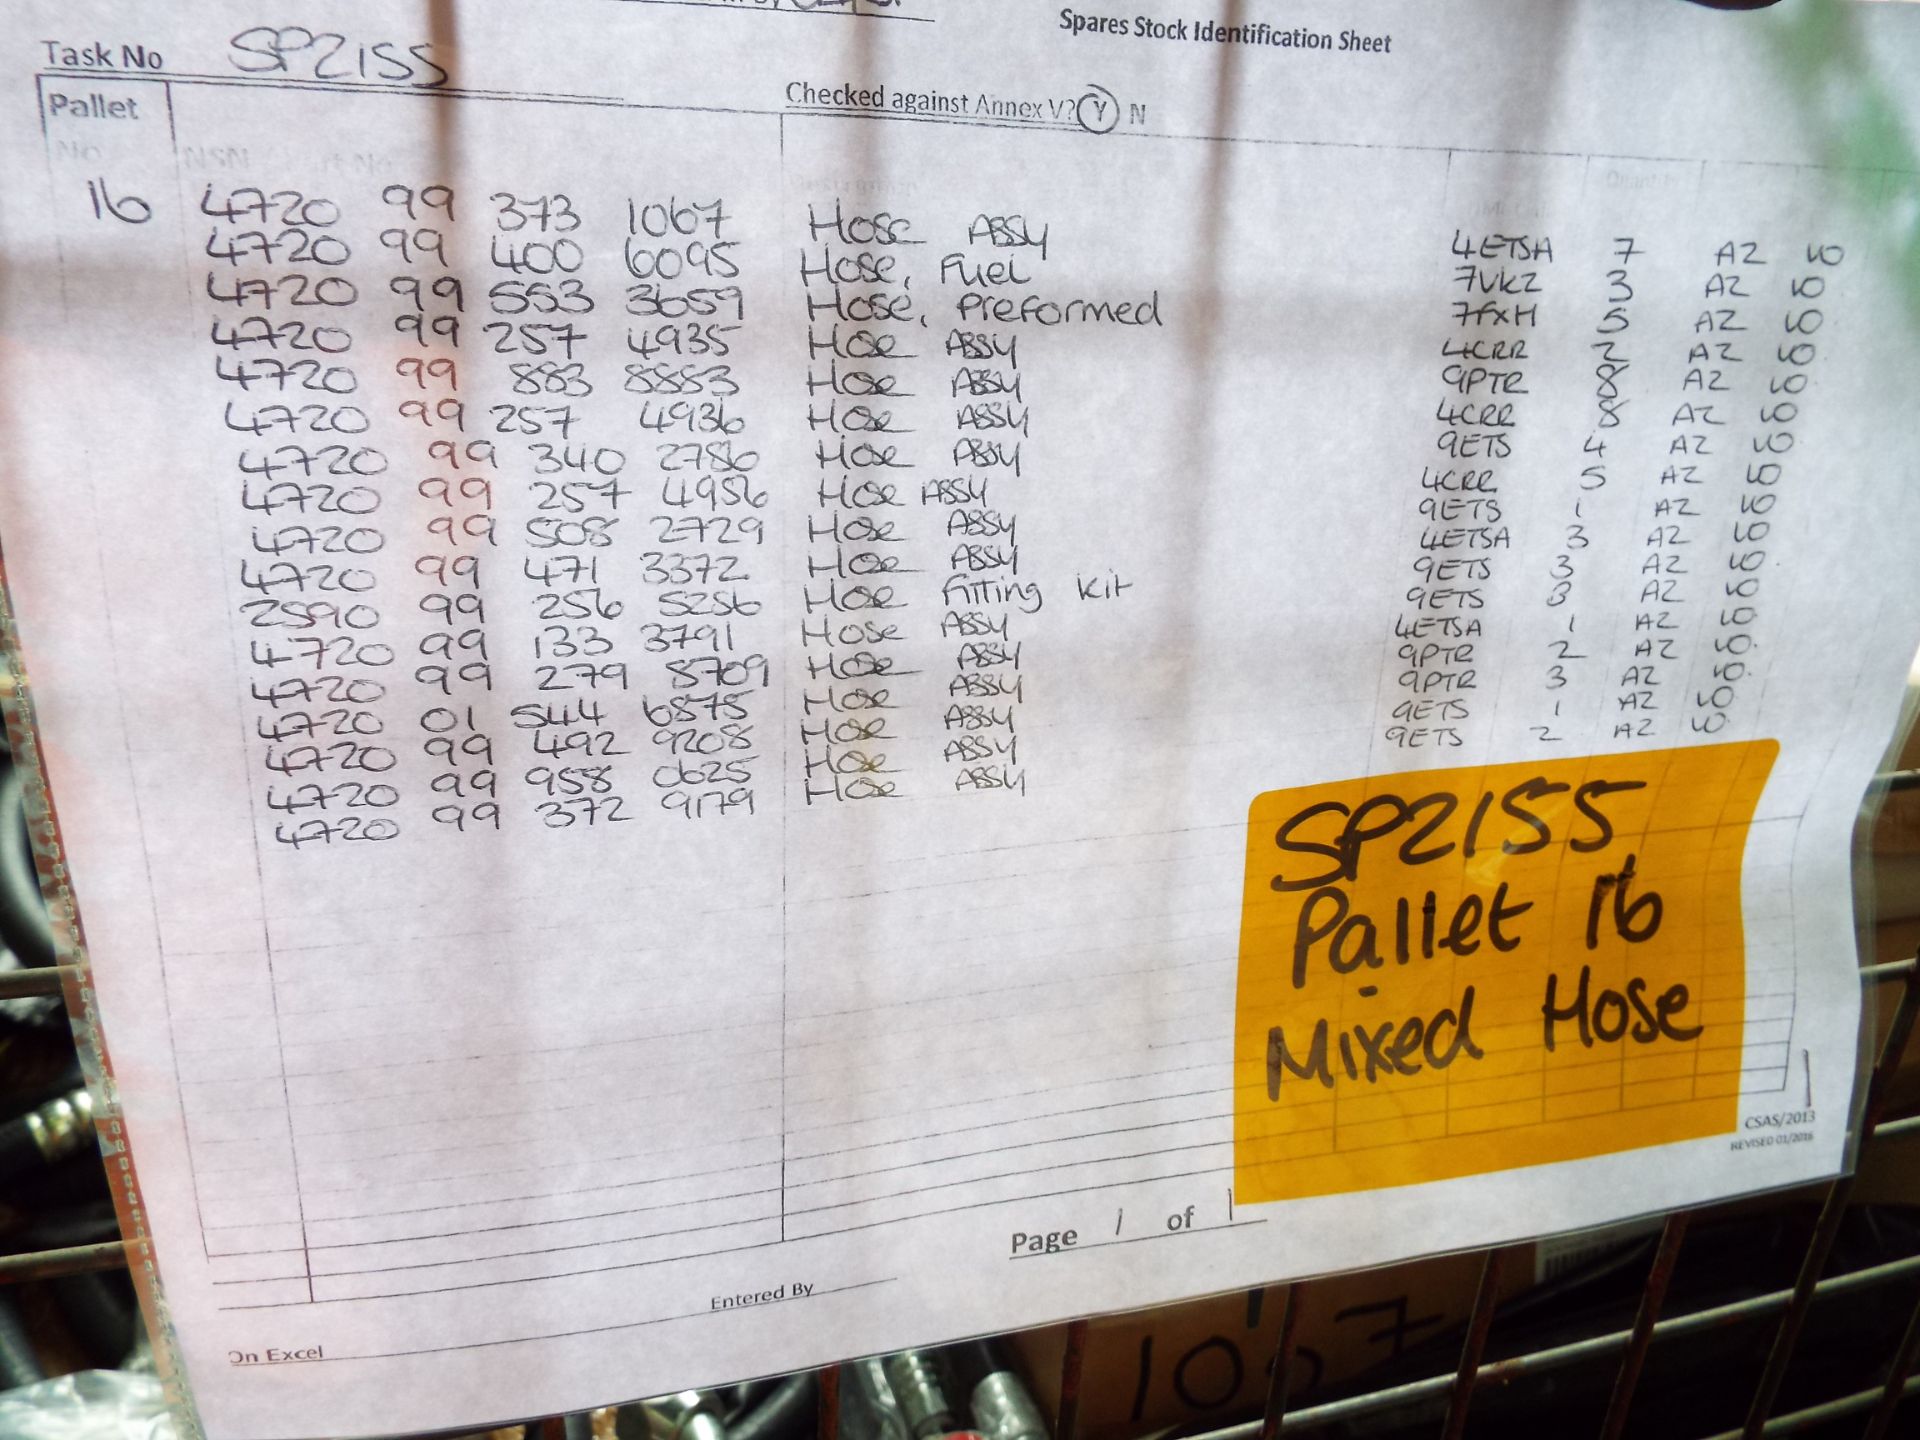 Spares Stock Identification Sheet
Task No SP2155
Checked against Annex V? Y N
Pallet
No NSN
16 4720 99 373 1067 Hose ASSY 4ETSA 7 A2 LO
4720 99 400 6095 Hose, Fuel 7VKZ 3 A2 LO
4720 99 553 3659 Hose, Preformed 7fxH 5 A2 LO
4720 99 257 4935 Hose ASSY 4CRR 2 A2 LO
4720 99 883 8853 Hose ASSY 9PTR 8 A2 LO
4720 99 257 4936 Hose ASSY 4CRR 8 A2 LO
4720 99 340 2786 Hose ASSY 9ETS 4 A2 LO
4720 99 257 4956 Hose ASSY 4CRR 5 A2 LO
4720 99 508 2729 Hose ASSY 9ETS 1 A2 LO
4720 99 471 3372 Hose ASSY 4ETSA 3 A2 LO
2590 99 256 5256 Hose Fitting kit 9ETS 3 A2 LO
4720 99 133 3791 Hose ASSY 9ETS 3 A2 LO
4720 99 279 8709 Hose ASSY 4ETSA 1 A2 LO
4720 01 544 6875 Hose ASSY 9PTR 2 A2 LO
4720 99 492 9208 Hose ASSY 9PTR 3 A2 LO
4720 99 958 0625 Hose ASSY 9ETS 1 A2 LO
4720 99 372 9179 Hose ASSY 9ETS 2 A2 LO
SP2155
Pallet 16
Mixed Hose
CSAS/2013
REVISED 01/2016
Page 1 of 1
Entered By
On Excel
1067